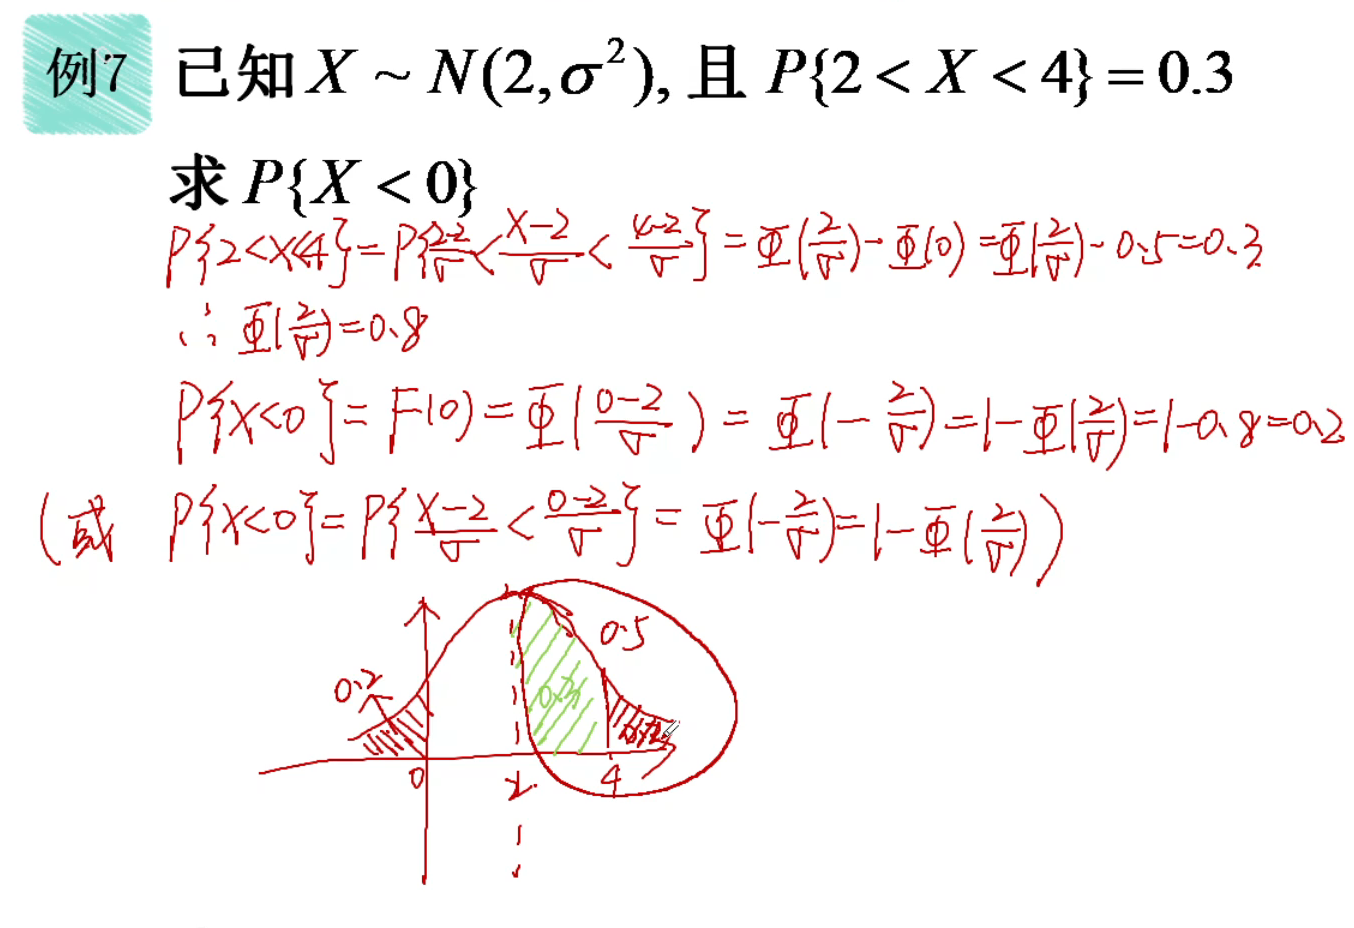 例7 已知 X ~ N(2, σ²), 且 P{2 < X < 4} = 0.3
求 P{X < 0}
P{2<X<4}=P{(2-2)/σ<(X-2)/σ<(4-2)/σ}=Φ(2/σ)-Φ(0)=Φ(2/σ)-0.5=0.3
∴ Φ(2/σ)=0.8
P{X<0}=F(0)=Φ((0-2)/σ)=Φ(-2/σ)=1-Φ(2/σ)=1-0.8=0.2
(或 P{X<0}=P{(X-2)/σ<(0-2)/σ}=Φ(-2/σ)=1-Φ(2/σ))
0.5
0.2 0.3
0 2 4